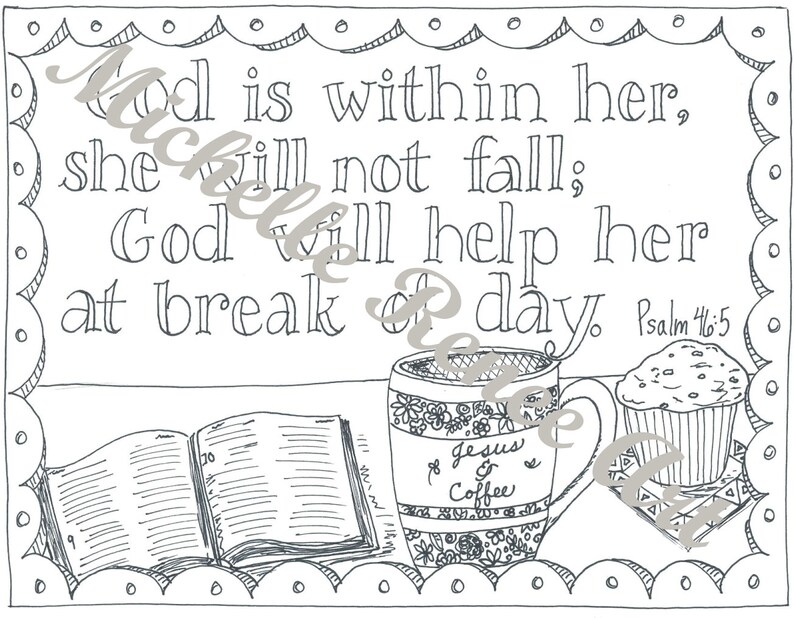 God is within her,
she will not fall;
God will help her
at break of day.
Psalm 46:5
Jesus
&
Coffee
Michelle Renee Art